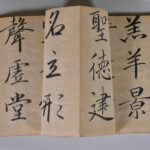 羔羊景
聖德建
名立形
聲虛堂